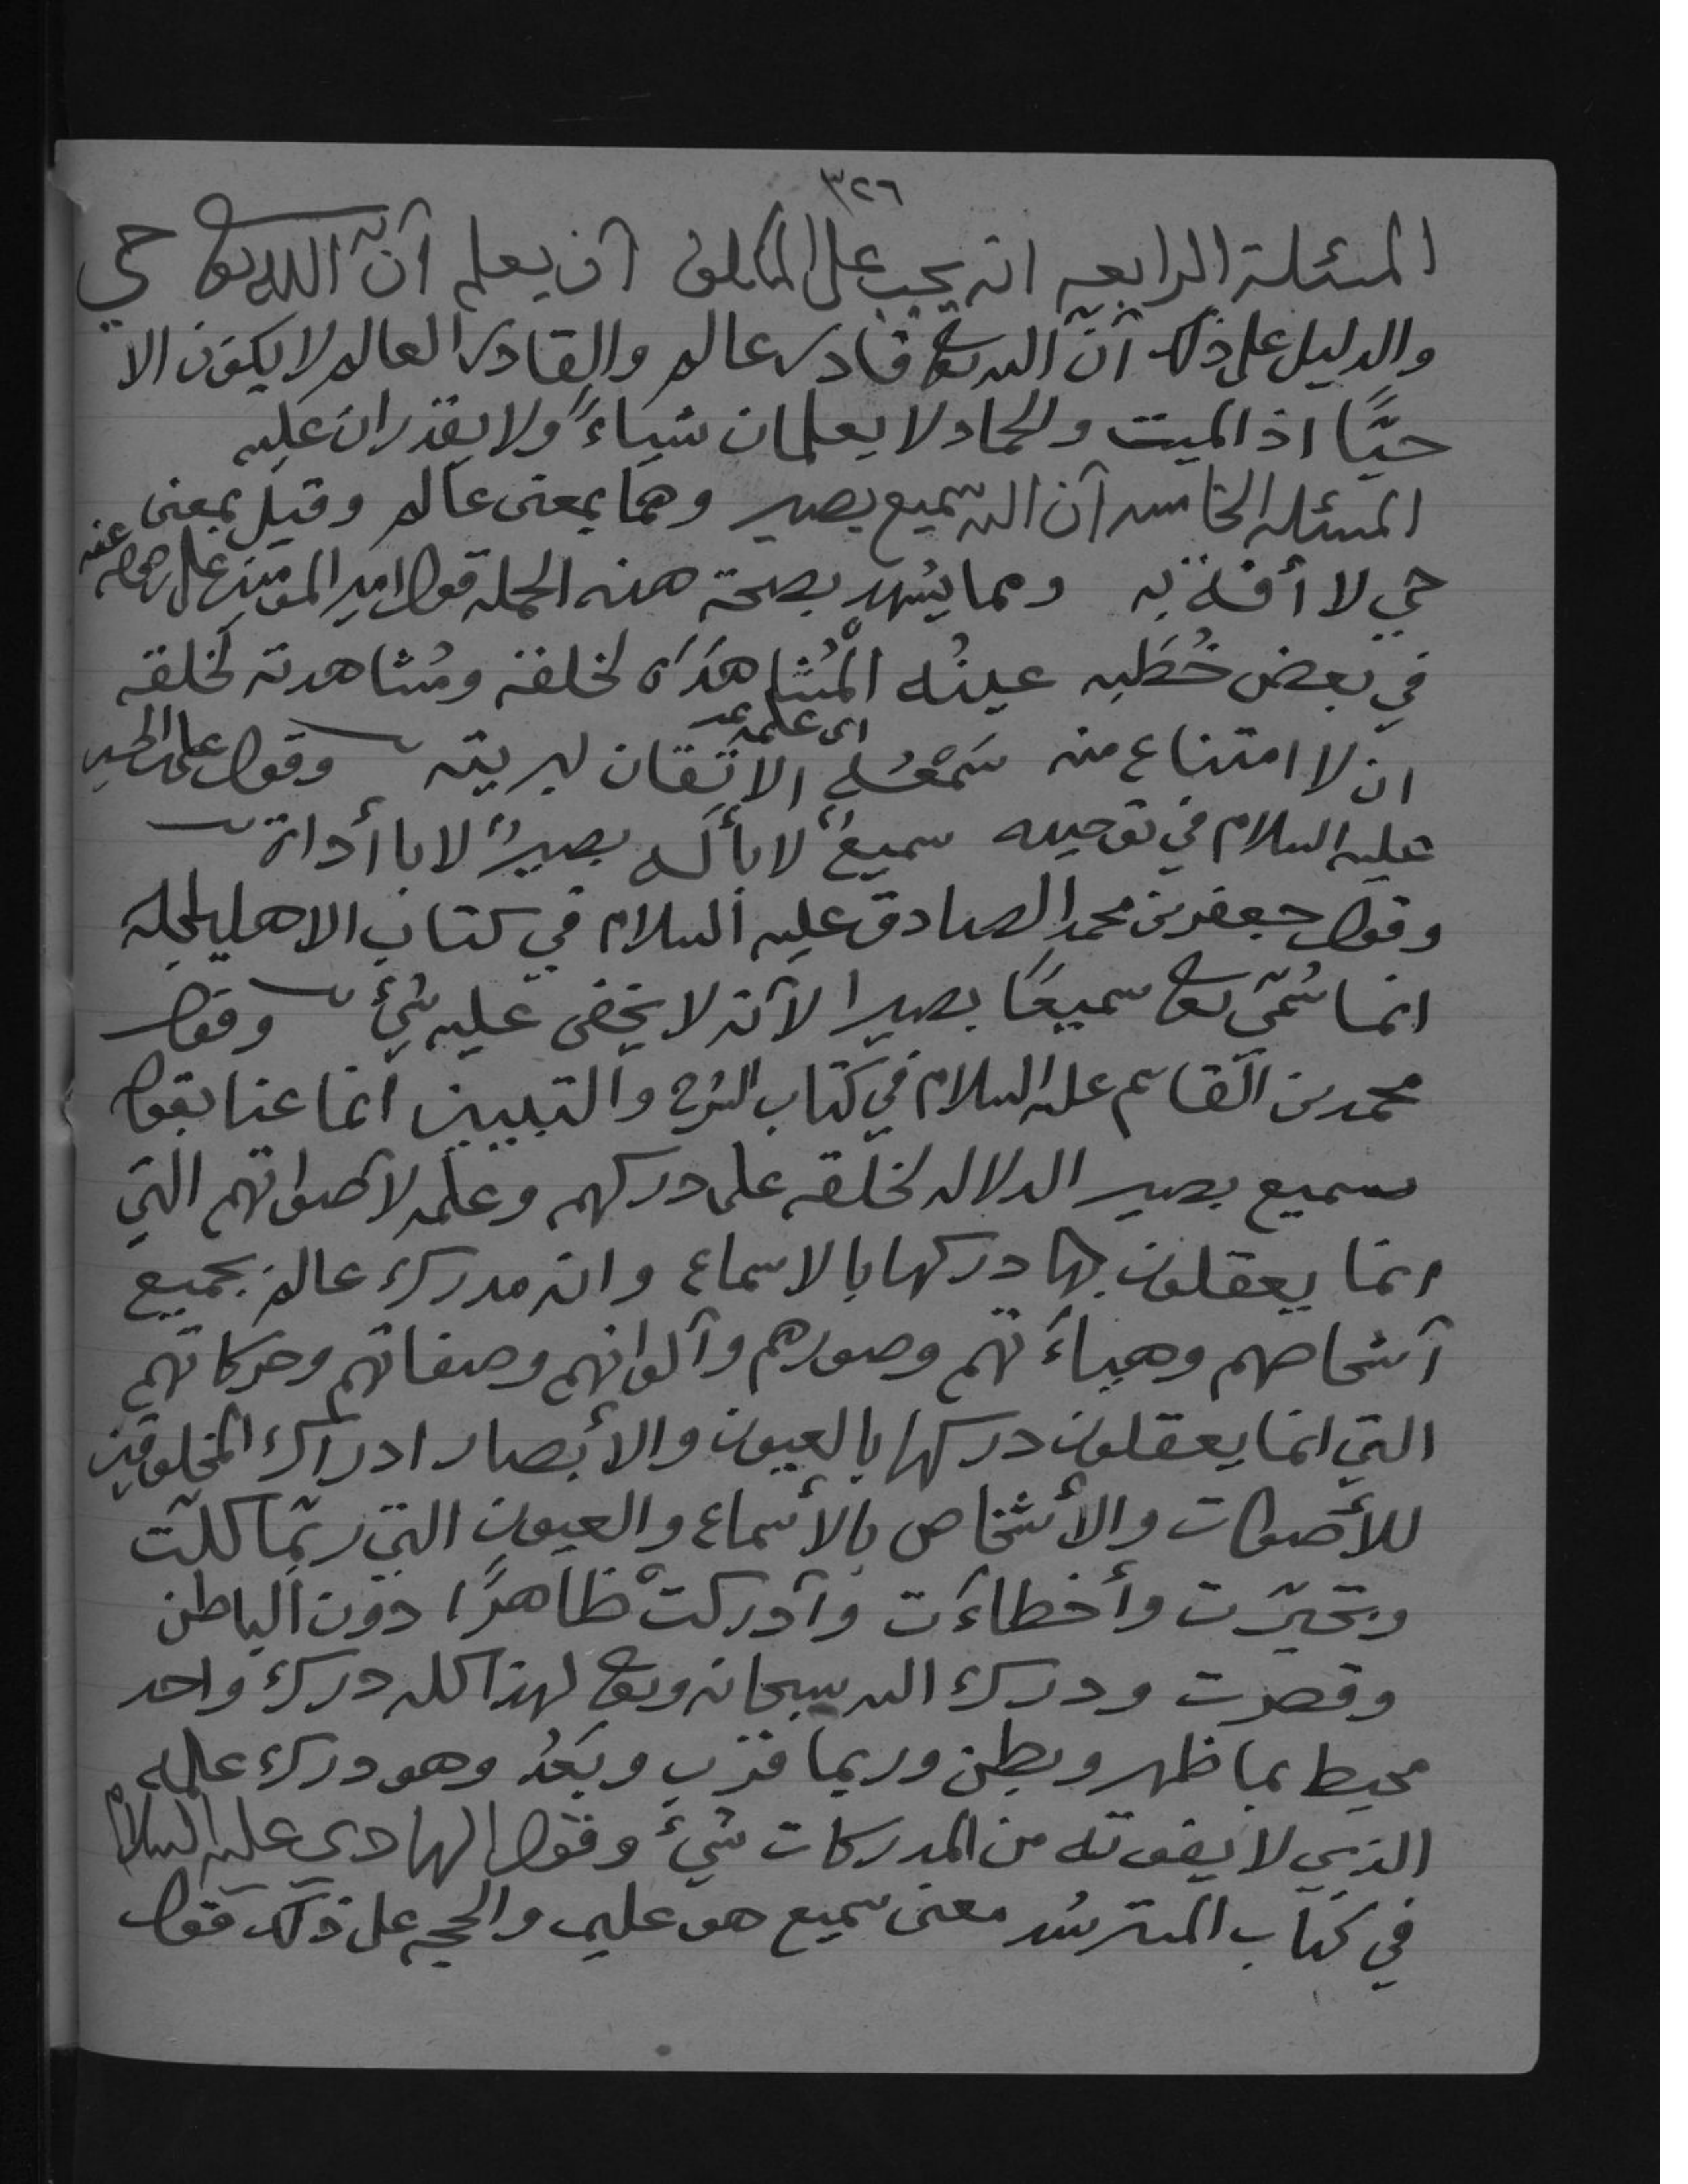 ٣٢٦
المسئلة الرابعه انه يجب على المكلف أن يعلم أنّ الله تعالى حي
والدليل على ذلك أنّ الله تعالى قادر عالم والقادر العالم لا يكون الا
حيًّا اذ الميت والجماد لا يعلمان شياءً ولا يقدران عليه
المسئله الخامسه أن الله سميع بصير وهما بمعنى عالم وقيل بمعنى
حي لا أفة به ومما يشهد بصحة هذه الجمله قول امير المؤمنين علي رضي الله عنه
في بعض خُطَبِه عينُه المُشاهدَة لخلقه ومُشاهدته لخلقه
ان لا امتناع منه سَمْعُه الاتقان لبريته وقول علي بن الحسين
اى علمه
عليه السلام في توحيده سميعٌ لا بأله بصيرٌ لا باأداة
وقول جعفر بن محمد الصادق عليه السلام في كتاب الاهليلجله
انما سُمّي تعالى سميعًا بصيرا لأنه لا يخفى عليه شئ وقول
محمد بن القاسم عليه السلام في كتاب الشرح والتبيين انما عنا بقول
سميع بصير الدلاله لخلقه على دركهم وعلمه لأصواتهم التي
انما يعقلون بها دركها بالاسماع وانه مدرك عالم بجميع
أشخاصهم وهياءَتهم وصورهم وألوانهم وصفاتهم وحركاتهم
التي انما يعقلون دركها بالعيون والأبصار ادراك المخلوقين
للأصوات والأشخاص بالأسماع والعيون التي ربّما كلّت
وتحيّرت وأخطاءَت وأدركتْ ظاهرًا دون الباطن
وقصرت ودرك الله سبحانه وتعالى لهذا كله درك واحد
محيط بما ظهر وبطن وربما قرب وبَعُد وهو درك علمه
الذي لا يفوته من المدركات شئ وقول الهادي عليه السلام
في كتاب المسترشد معنى سميع هو عليم والحجه على ذلك قول